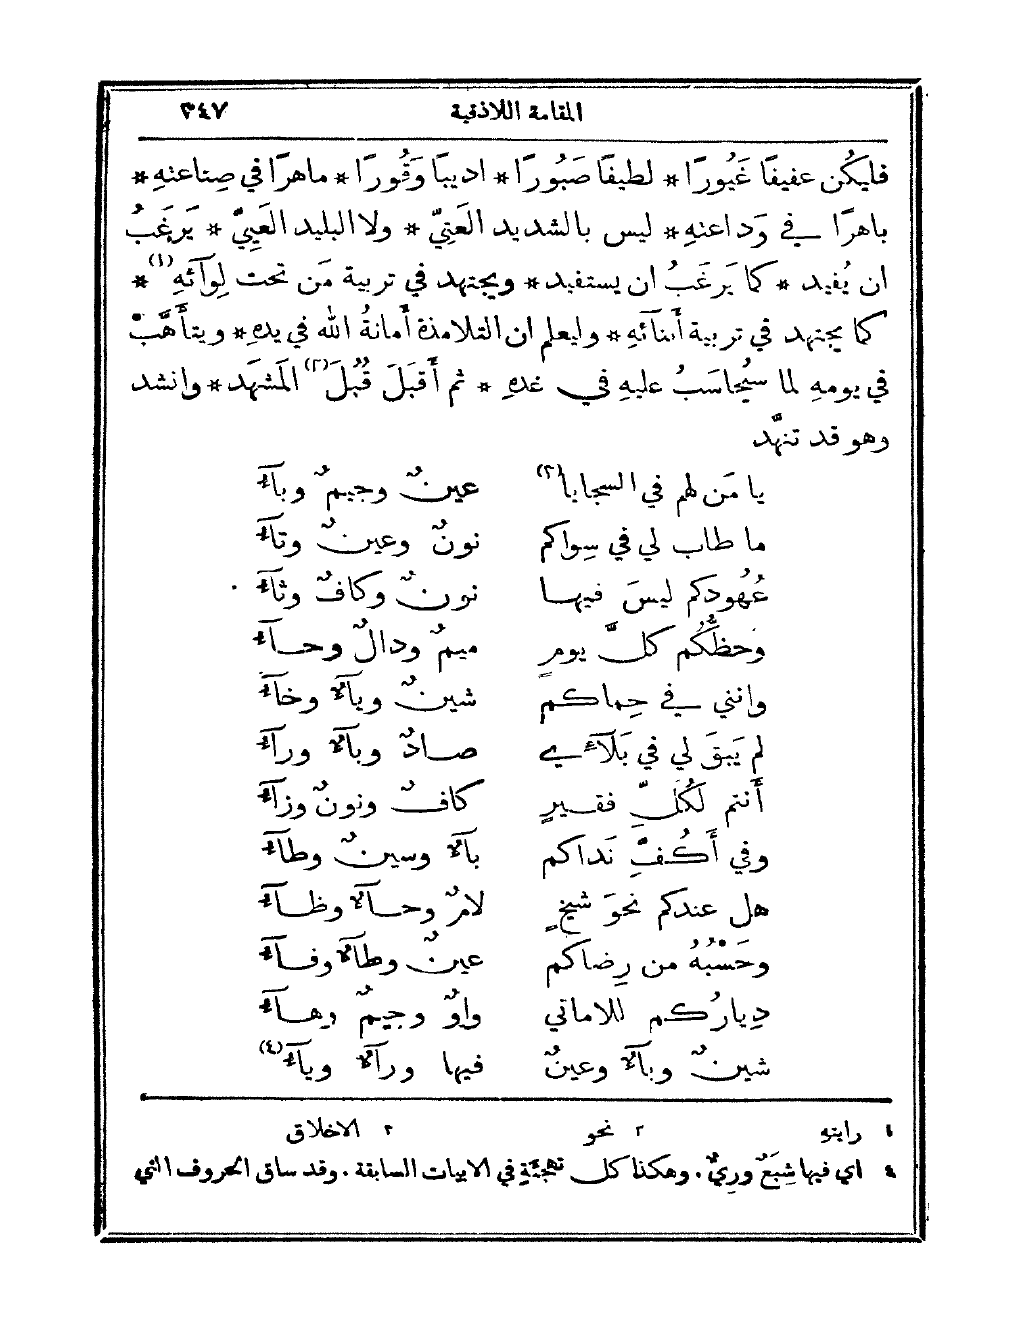 المقامة اللاذقية ٣٤٧
فليكُن عفيفًا غَيُورًا * لطيفًا صَبُورًا * اديبًا وَقُورًا * ماهرًا في صِناعتهِ *
باهرًا في وَداعتهِ * ليس بالشديد العَتِيّ * ولا البليد العَيِيّ * يَرغَبُ
ان يُفيد * كما يَرغَبُ ان يستفيد * ويجتهد في تربية مَن تحت لِوآئهِ(١) *
كما يجتهد في تربية أَبنآئهِ * وليعلم ان التلامذة أَمانةُ الله في يدهِ * ويتأَهَّبْ
في يومهِ لما سيُحاسَبُ عليهِ في غدهِ * ثم أَقبَلَ قُبُلَ(٢) المَشهَد * وانشد
وهو قد تنهَّد
يا مَن لهم في السجايا(٣) عينٌ وجيمٌ وبآءُ
ما طاب لي في سِواكم نونٌ وعينٌ وتآءُ
عُهُودكم ليسَ فيها نونٌ وكافٌ وثآءُ
وَحظُّكُم كلَّ يومٍ ميمٌ ودالٌ وحآءُ
وانني في حِماكم شينٌ ويآءٌ وخآءُ
لم يَبقَ لي في بَلآءي صادٌ وبآءٌ ورآءُ
أَنتم لكُلِّ فقيرٍ كافٌ ونونٌ وزآءُ
وفي أَكُفِّ نَداكم بآءٌ وسينٌ وطآءُ
هل عندكم نحوَ شيخٍ لامٌ وحآءٌ وظآءُ
وحَسْبُهُ من رِضاكم عينٌ وطآءٌ وفآءُ
دِيارُكم للاماني واوٌ وجيمٌ وهآءُ
شينٌ وبآءٌ وعينٌ فيها ورآءٌ ويآءُ(٤)
١ رايتهِ ٢ نحو ٣ الاخلاق
٤ اي فيها شِبَعٌ ورِيٌّ . وهكذا كل تهجئةٍ في الابيات السابقة . وقد ساق الحروف التي